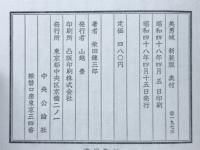 美男城 新装版 奥付
©一九七三
昭和四十八年四月 五 日印刷
昭和四十八年四月十五日発行
定価 四八〇円
著者 柴田錬三郎
発行者 山越 豊
印刷所 凸版印刷株式会社
発行所 東京都中央区京橋二ノ一
中央公論社
振替口座東京三四番